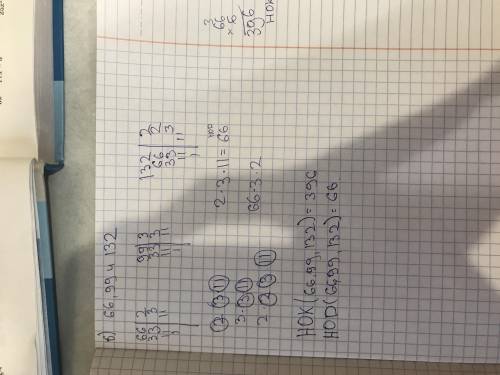 в) 66,99 и 132
66 | 2   99 | 3   132 | 2
33 | 3   33 | 3   66 | 2
11 | 11   11 | 11   33 | 3
1   1   11 | 11
1
2·3·11
3·3·11
2·2·3·11
НОД
2·3·11=66
66·3·2
НОК(66,99,132)=396
НОD(66,99,132)=66.
3
66
×6
396
НОК